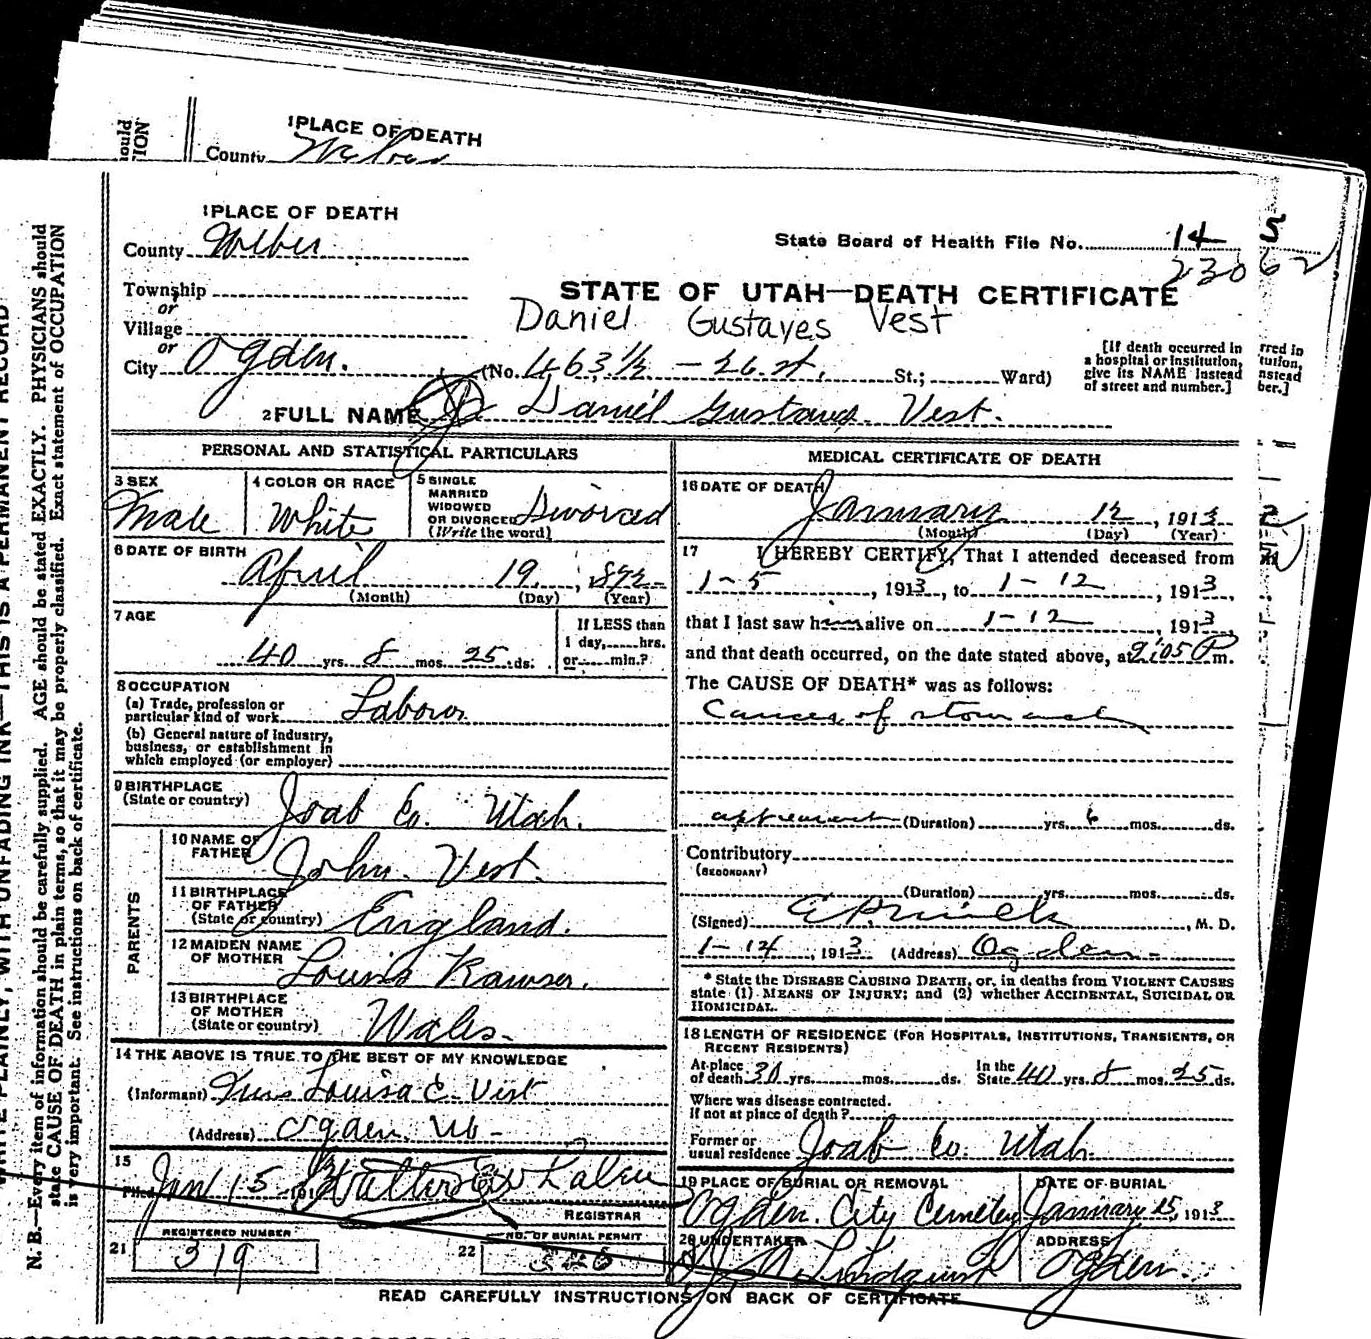 1 PLACE OF DEATH
County Weber
ould
TION
1 PLACE OF DEATH
County Weber
State Board of Health File No. 14 5
23062
Township
or
Village
or
City Ogden.
STATE OF UTAH—DEATH CERTIFICATE
Daniel Gustaves Vest
(No. 463 1/2 - 26. st. St.; Ward)
[If death occurred in
a hospital or institution,
give its NAME instead
of street and number.]
rred in
tution,
nstead
ber.]
2 FULL NAME Daniel Gustavs. Vest.
PERSONAL AND STATISTICAL PARTICULARS
3 SEX
Male
4 COLOR OR RACE
White
5 SINGLE
MARRIED
WIDOWED
OR DIVORCED Divorced
(Write the word)
6 DATE OF BIRTH
April 19, 1872
(Month) (Day) (Year)
7 AGE
40 yrs. 8 mos. 25 ds.
If LESS than
1 day, hrs.
or min.?
8 OCCUPATION
(a) Trade, profession or
particular kind of work Labor
(b) General nature of industry,
business, or establishment in
which employed (or employer)
9 BIRTHPLACE
(State or country) Joab Co. Utah.
PARENTS
10 NAME OF
FATHER John. Vest.
11 BIRTHPLACE
OF FATHER
(State or country) England.
12 MAIDEN NAME
OF MOTHER Louisa
13 BIRTHPLACE
OF MOTHER
(State or country) Wales.
14 THE ABOVE IS TRUE TO THE BEST OF MY KNOWLEDGE
(Informant) Louisa E. Vest
(Address) Ogden. Ut-
15
Filed Jan 15 1913
REGISTRAR
REGISTERED NUMBER
21 319
NO. OF BURIAL PERMIT
22
MEDICAL CERTIFICATE OF DEATH
16 DATE OF DEATH
January 12, 1913
(Month) (Day) (Year)
17 I HEREBY CERTIFY, That I attended deceased from
1-5, 1913, to 1-12, 1913,
that I last saw him alive on 1-12, 1913
and that death occurred, on the date stated above, at 9:05 P m.
The CAUSE OF DEATH* was as follows:
Cancer of stomach
(Duration) yrs. 6 mos. ds.
Contributory
(SECONDARY)
(Duration) yrs. mos. ds.
(Signed) , M. D.
1-14, 1913 (Address) Ogden-
* State the DISEASE CAUSING DEATH, or, in deaths from VIOLENT CAUSES
state (1) MEANS OF INJURY; and (2) whether ACCIDENTAL, SUICIDAL OR
HOMICIDAL.
18 LENGTH OF RESIDENCE (FOR HOSPITALS, INSTITUTIONS, TRANSIENTS, OR
RECENT RESIDENTS)
At place
of death 30 yrs. mos. ds.
In the
State 40 yrs. 8 mos. 25 ds.
Where was disease contracted.
If not at place of death?
Former or
usual residence Joab Co. Utah.
19 PLACE OF BURIAL OR REMOVAL
Ogden. City Cemetery
DATE OF BURIAL
January 15, 1913
20 UNDERTAKER
Lindquist
ADDRESS
Ogden.
READ CAREFULLY INSTRUCTIONS ON BACK OF CERTIFICATE
WRITE PLAINLY, WITH UNFADING INK—THIS IS A PERMANENT RECORD
N. B.—Every item of information should be carefully supplied. AGE should be stated EXACTLY. PHYSICIANS should
state CAUSE OF DEATH in plain terms, so that it may be properly classified. Exact statement of OCCUPATION
is very important. See instructions on back of certificate.